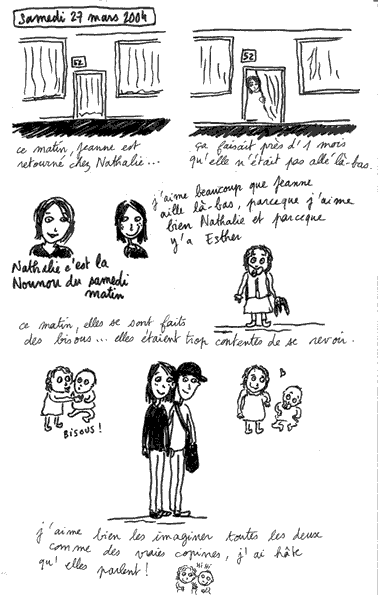 Samedi 27 mars 2004
52
52
ce matin, Jeanne est
retourné chez Nathalie...
ça faisait près d'1 mois
qu'elle n'était pas allé là-bas.
j'aime beaucoup que Jeanne
aille là-bas, parceque j'aime
bien Nathalie et parceque
y'a Esther
Nathalie c'est la
Nounou du samedi
matin
ce matin, elles se sont faits
des bisous... elles étaient trop contentes de se revoir.
BISOUS !
j'aime bien les imaginer toutes les deux
comme des vraies copines, j'ai hâte
qu'elles parlent !
Hi Hi